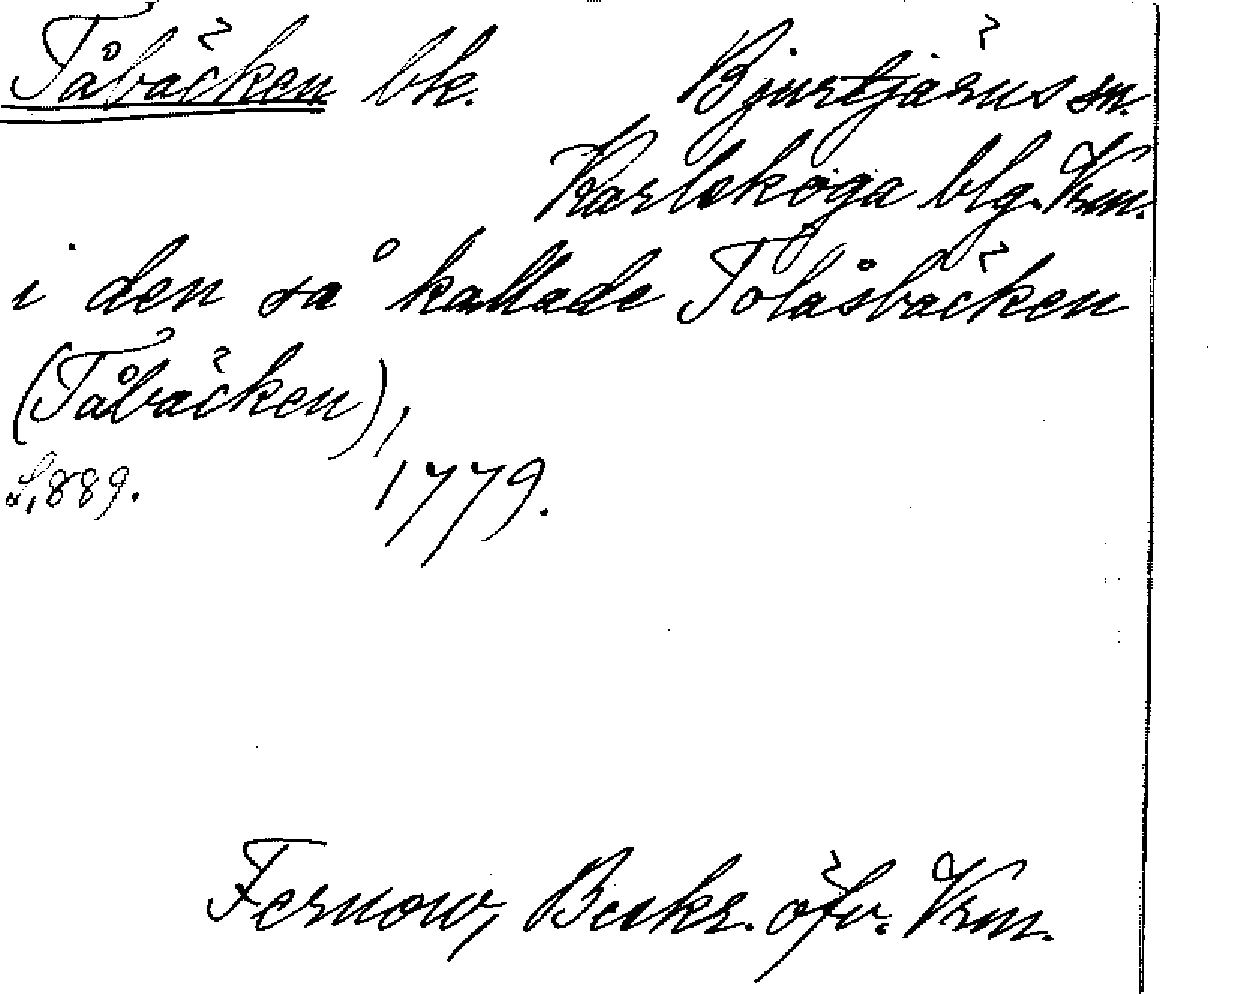 Tåbäcken bk. Bjurtjärns sn.
Karlskoga blg. Vrm.
i den så kallade Tolåsbäcken
(Tåbäcken),
s. 889. 1779.
Fernow, Beskr. öfv. Vrm.